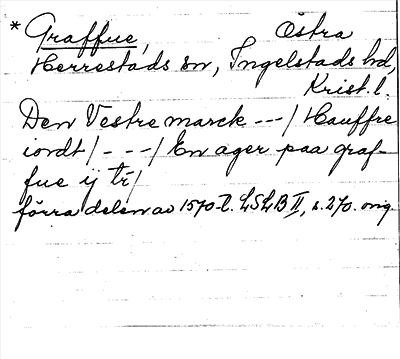 * Graffue, Östra
Herrestads sn, Ingelstads hd,
Krist. l.
Den Vestre marck ---/ Hauffre
iordt/ - - -/ En ager paa graf-
fue ij tr/
förra delen av 1570-t. LSLB II, s. 270. orig.